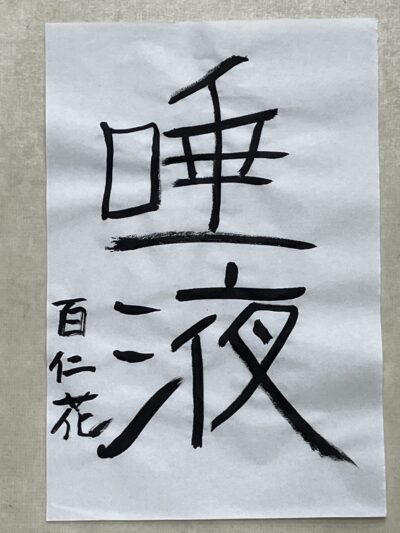 唾液
百仁花